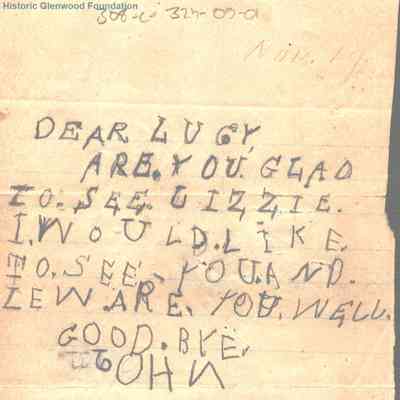 Historic Glenwood Foundation
Nov. 17
DEAR LUCY,
ARE.YOU.GLAD
TO.SEE.LIZZIE.
I.WOULD.LIKE.
TO.SEE.YOU.AND.
LEW.ARE.YOU.WELL.
GOOD.BYE.
JOHN